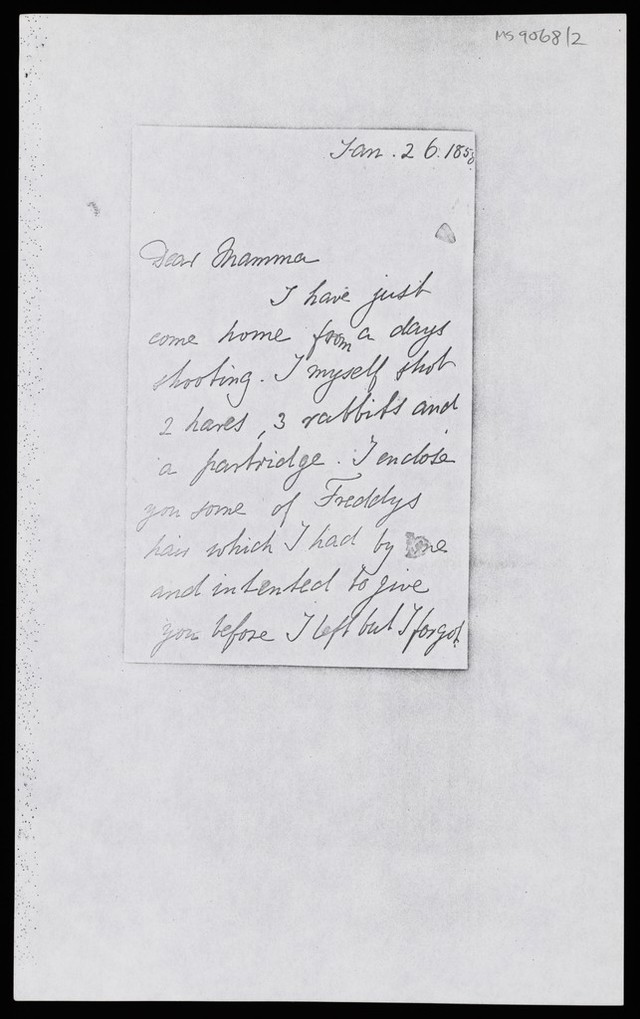 MS 9068/2
Jan. 26. 1858.
Dear Mamma
I have just
come home from a days
shooting. I myself shot
2 hares, 3 rabbits and
a partridge. I enclose
you some of Freddys
hair which I had by me
and intented to give
you before I left but I forgot.